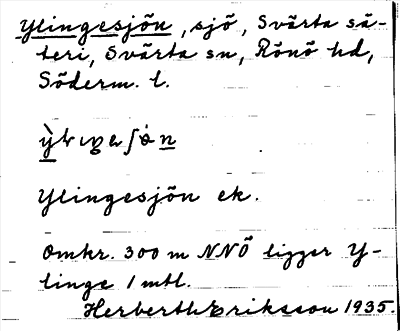 Ylingesjön, sjö, Svärta sä-
teri, Svärta sn, Rönö hd,
Söderm. l.
Ylingesjön ek.
Omkr. 300 m NNÖ ligger Y-
linge 1 mtl.
Herberth Eriksson 1935.